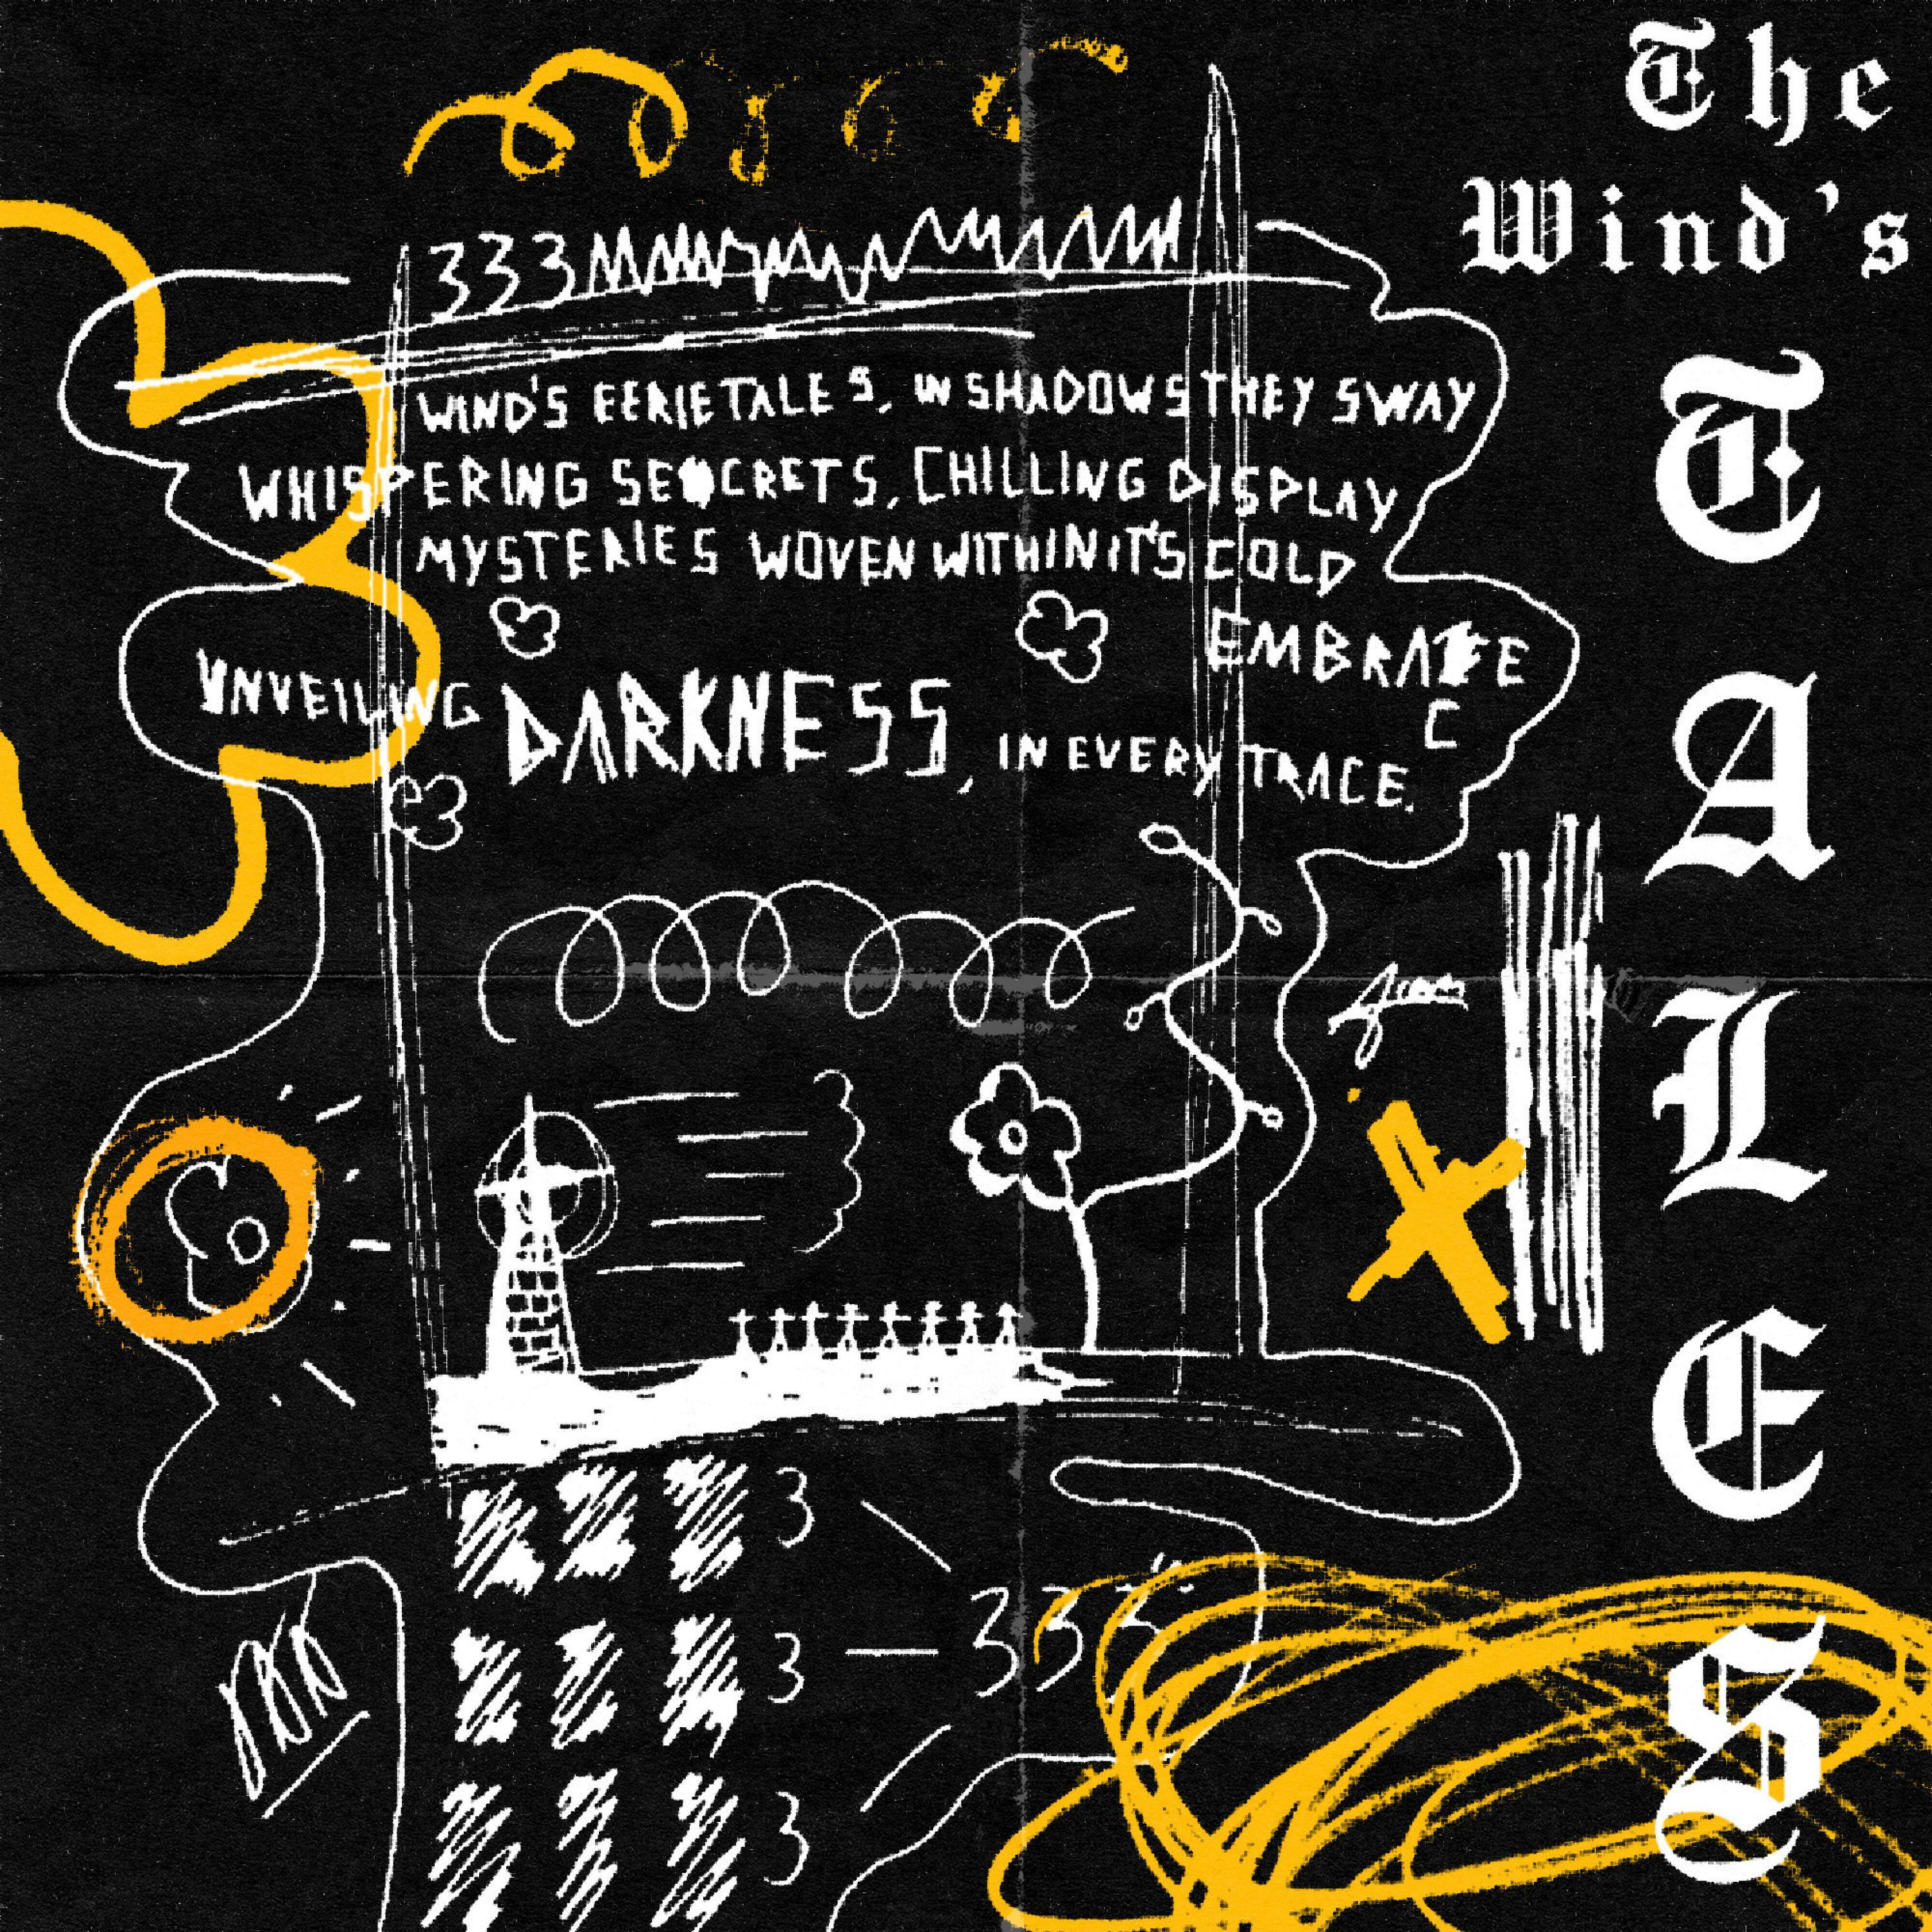 The
Wind's
TALES
333
WIND'S EERIE TALES, IN SHADOWS THEY SWAY
WHISPERING SECRETS, CHILLING DISPLAY
MYSTERIES WOVEN WITHIN IT'S COLD
EMBRACE
C
UNVEILING DARKNESS, IN EVERY TRACE.
3
3 — 333
3